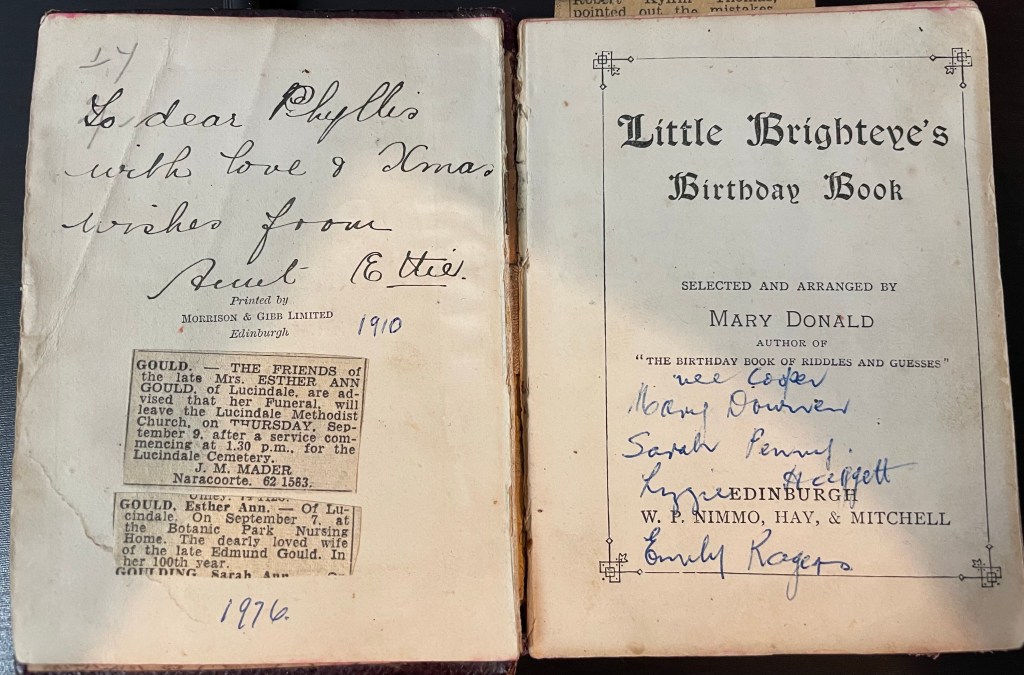 17
To dear Phyllis
with love & Xmas
wishes from
Aunt Ettie.
Printed by
MORRISON & GIBB LIMITED
Edinburgh
1910
GOULD. — THE FRIENDS of
the late Mrs. ESTHER ANN
GOULD, of Lucindale, are ad-
vised that her Funeral, will
leave the Lucindale Methodist
Church, on THURSDAY, Sep-
tember 9, after a service com-
mencing at 1.30 p.m., for the
Lucindale Cemetery.
J. M. MADER
Naracoorte. 62 1583.
GOULD, Esther Ann. — Of Lu-
cindale. On September 7, at
the Botanic Park Nursing
Home. The dearly loved wife
of the late Edmund Gould. In
her 100th year.
GOULDING, Sarah Ann
1976.
Thomas,
pointed out the mistakes
Little Brighteye's
Birthday Book
SELECTED AND ARRANGED BY
MARY DONALD
AUTHOR OF
"THE BIRTHDAY BOOK OF RIDDLES AND GUESSES"
nee Cooper
Mary
Sarah Penny.
Lizzie
EDINBURGH
W. P. NIMMO, HAY, & MITCHELL
Emily Rogers